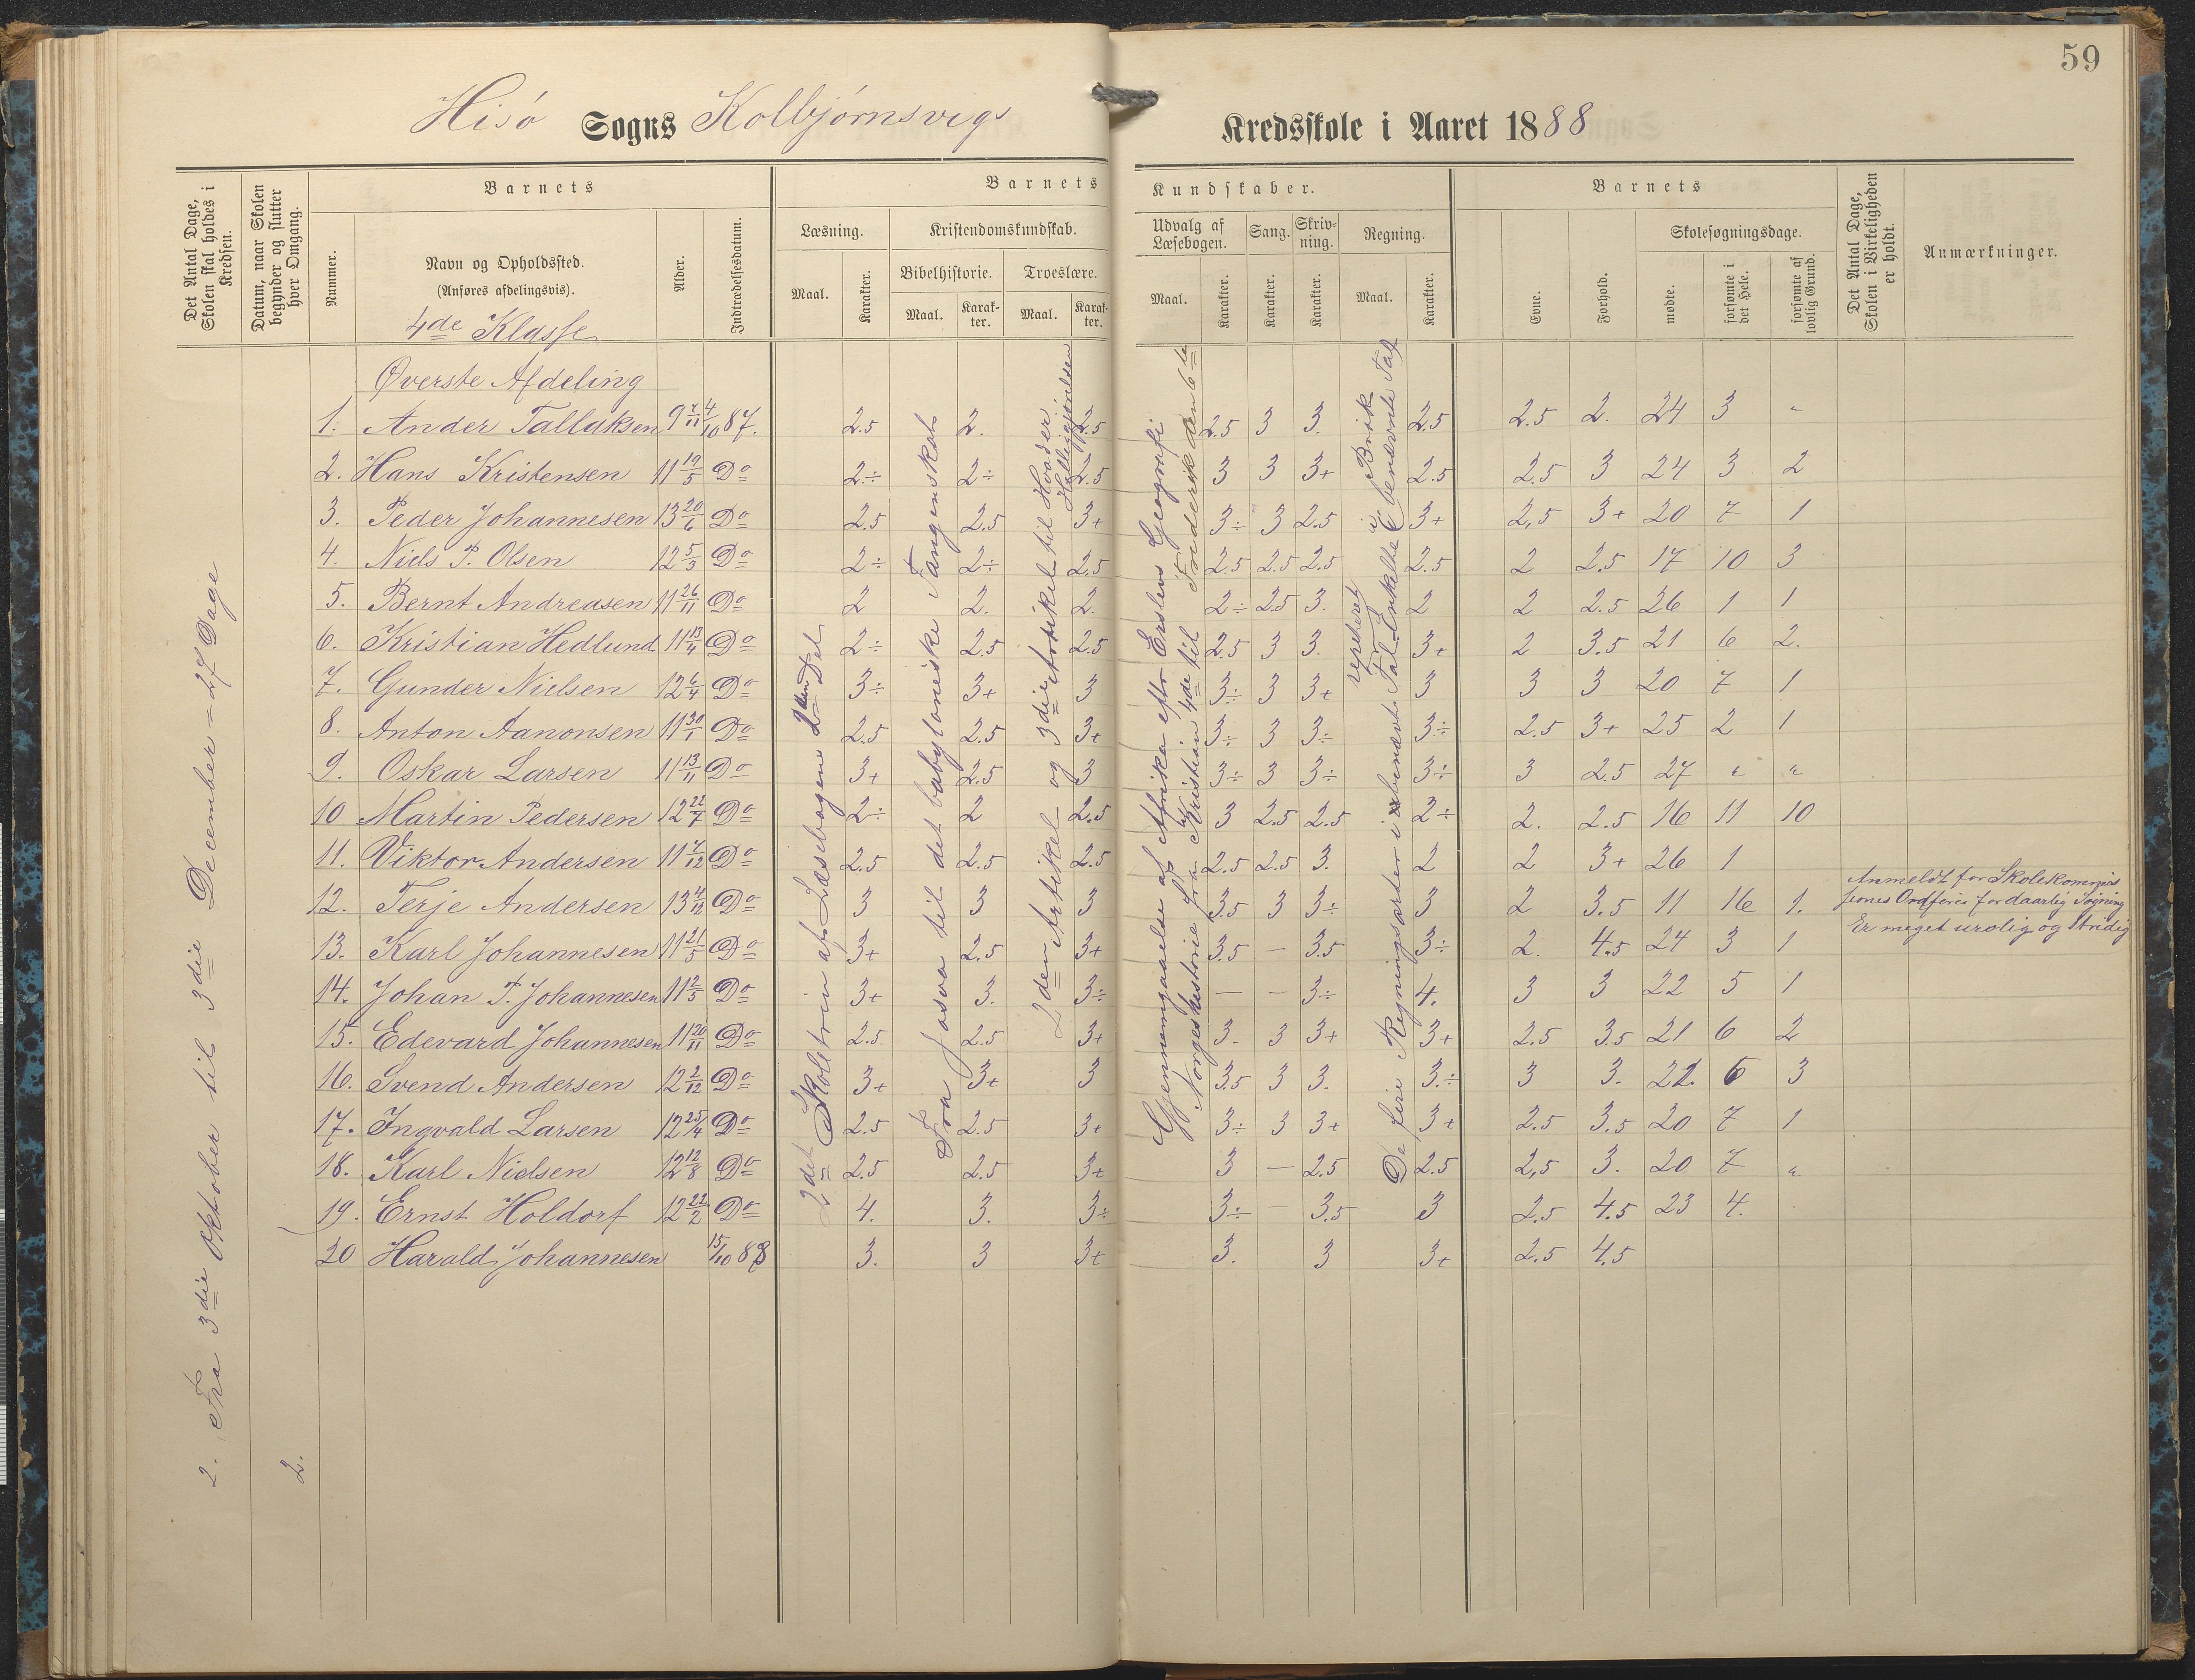 59
Hisö Sogns Kolbjørnsvigs Kredsskole i Aaret 1888
Det Antal Dage, Skolen skal holdes i Kredsen.
Datum, naar Skolen begynder og slutter hver Omgang.
Barnets
Nummer.
Navn og Opholdssted.
(Anføres afdelingsvis).
4de Klasse
Alder.
Indtrædelsesdatum.
Barnets Kundskaber.
Læsning.
Maal.
Karakter.
Kristendomskundskab.
Bibelhistorie.
Maal.
Karakter.
Troeslære.
Maal.
Karakter.
Udvalg af Læsebogen.
Maal.
Karakter.
Sang.
Karakter.
Skrivning.
Karakter.
Regning.
Maal.
Karakter.
Barnets
Evne.
Forhold.
Skolesøgningsdage.
mødte.
forsømte i det Hele.
forsømte af lovlig Grund.
Det Antal Dage, Skolen i Virkeligheden er holdt.
Anmærkninger.
Øverste Afdeling
1. Ander Tallaksen 9 7/11 4/10 87. 2.5 2. 2.5 2.5 3 3. 2.5 2.5 2. 24 3 "
2. Hans Kristensen 11 19/5 Do 2÷ 2÷ 2.5 3 3 3+ 2.5 2.5 3 24 3 2
3. Peder Johannesen 13 20/6 Do 2.5 2.5 3+ 3÷ 3 2.5 3+ 2,5 3+ 20 7 1
4. Niels P. Olsen 12 5/3 Do 2÷ 2÷ 2.5 2.5 2.5 2.5 2.5 2 2.5 17 10 3
5. Bernt Andreasen 11 26/11 Do 2 2. 2. 2÷ 2.5 3. 2 2 2.5 26 1 1
6. Kristian Hedlund 11 13/4 Do 2÷ 2.5 2.5 2.5 3 3. 3+ 2 3.5 21 6 2.
7. Gunder Nielsen 12 6/4 Do 3÷ 3+ 3 3÷ 3 3+ 3 3 3 20 7 1
8. Anton Aanonsen 11 30/1 Do 2.5 2.5 3+ 3÷ 3 3÷ 3÷ 2.5 3+ 25 2 1
9. Oskar Larsen 11 13/11 Do 3+ 2.5 3 3÷ 3 3÷ 3÷ 3 2.5 27 " "
10 Martin Pedersen 12 22/7 Do 2÷ 2 2.5 3 2.5 2.5 2÷ 2. 2.5 16 11 10
11. Viktor Andersen 11 7/12 Do 2.5 2.5 2.5 2.5 2.5 3. 2 2 3+ 26 1
12. Terje Andersen 13 4/12 Do 3 3 3 3.5 3 3÷ 3 2 3.5 11 16 1.
Anmeldt for Skolekommissionens Ordfører for daarlig Søgning
13. Karl Johannesen 11 21/5 Do 3+ 2.5 3+ 3.5 — 3.5 3÷ 2. 4.5 24 3 1
Er meget urolig og stridig
14. Johan P. Johannesen 11 2/5 Do 3+ 3. 3÷ — — 3÷ 4. 3 3 22 5 1
15. Edevard Johannesen 11 20/11 Do 2.5 2.5 3+ 3. 3 3+ 3+ 2.5 3.5 21 6 2
16. Svend Andersen 12 2/12 Do 3+ 3+ 3 3.5 3 3. 3.÷ 3 3. 22. 6 3
17. Ingvald Larsen 12 25/4 Do 2.5 2.5 3+ 3÷ 3 3+ 3+ 2.5 3.5 20 7 1
18. Karl Nielsen 12 12/8 Do 2.5 2.5 3+ 3 — 2.5 2.5 2,5 3. 20 7 "
19. Ernst Holdorf 12 22/2 Do 4. 3. 3÷ 3÷ — 3.5 3 2.5 4.5 23 4.
20 Harald Johannesen 15/10 88 3. 3 3+ 3. 3 3+ 2.5 4.5
2. Fra 3die Oktober til 3die December = 27 Dage
2.
2det Skoletrin af Læsebogens 2den Del
Fra Josva til det babyloniske Fangenskab
2den Artikel og 3die Artikel til Hvad er Helliggjørelsen
Gjennemgaaelse af Afrika efter Erslevs Geografi
Norgeshistorie fra Kristian 4de til Frederik den 6te
De fire Regningsarter i ubenævnte Tal Enkelte benævnte Tal
repeteret i Brøk